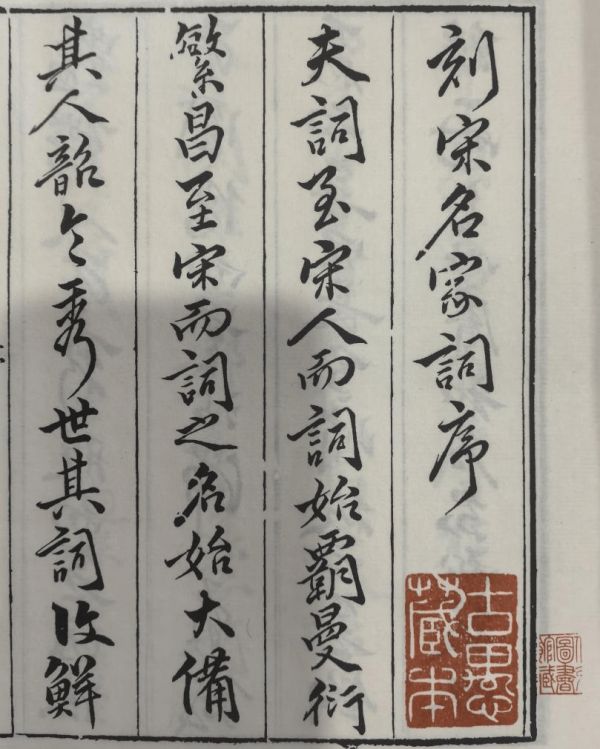 刻宋名家詞序
夫詞至宋人而詞始霸曼衍
繁昌至宋而詞之名始大備
其人韶令秀世其詞復鮮
古愚
藏本